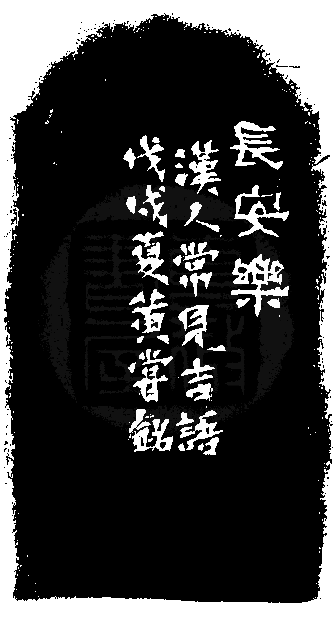 長安樂
漢人常見吉語
戊戌夏黃嘗銘